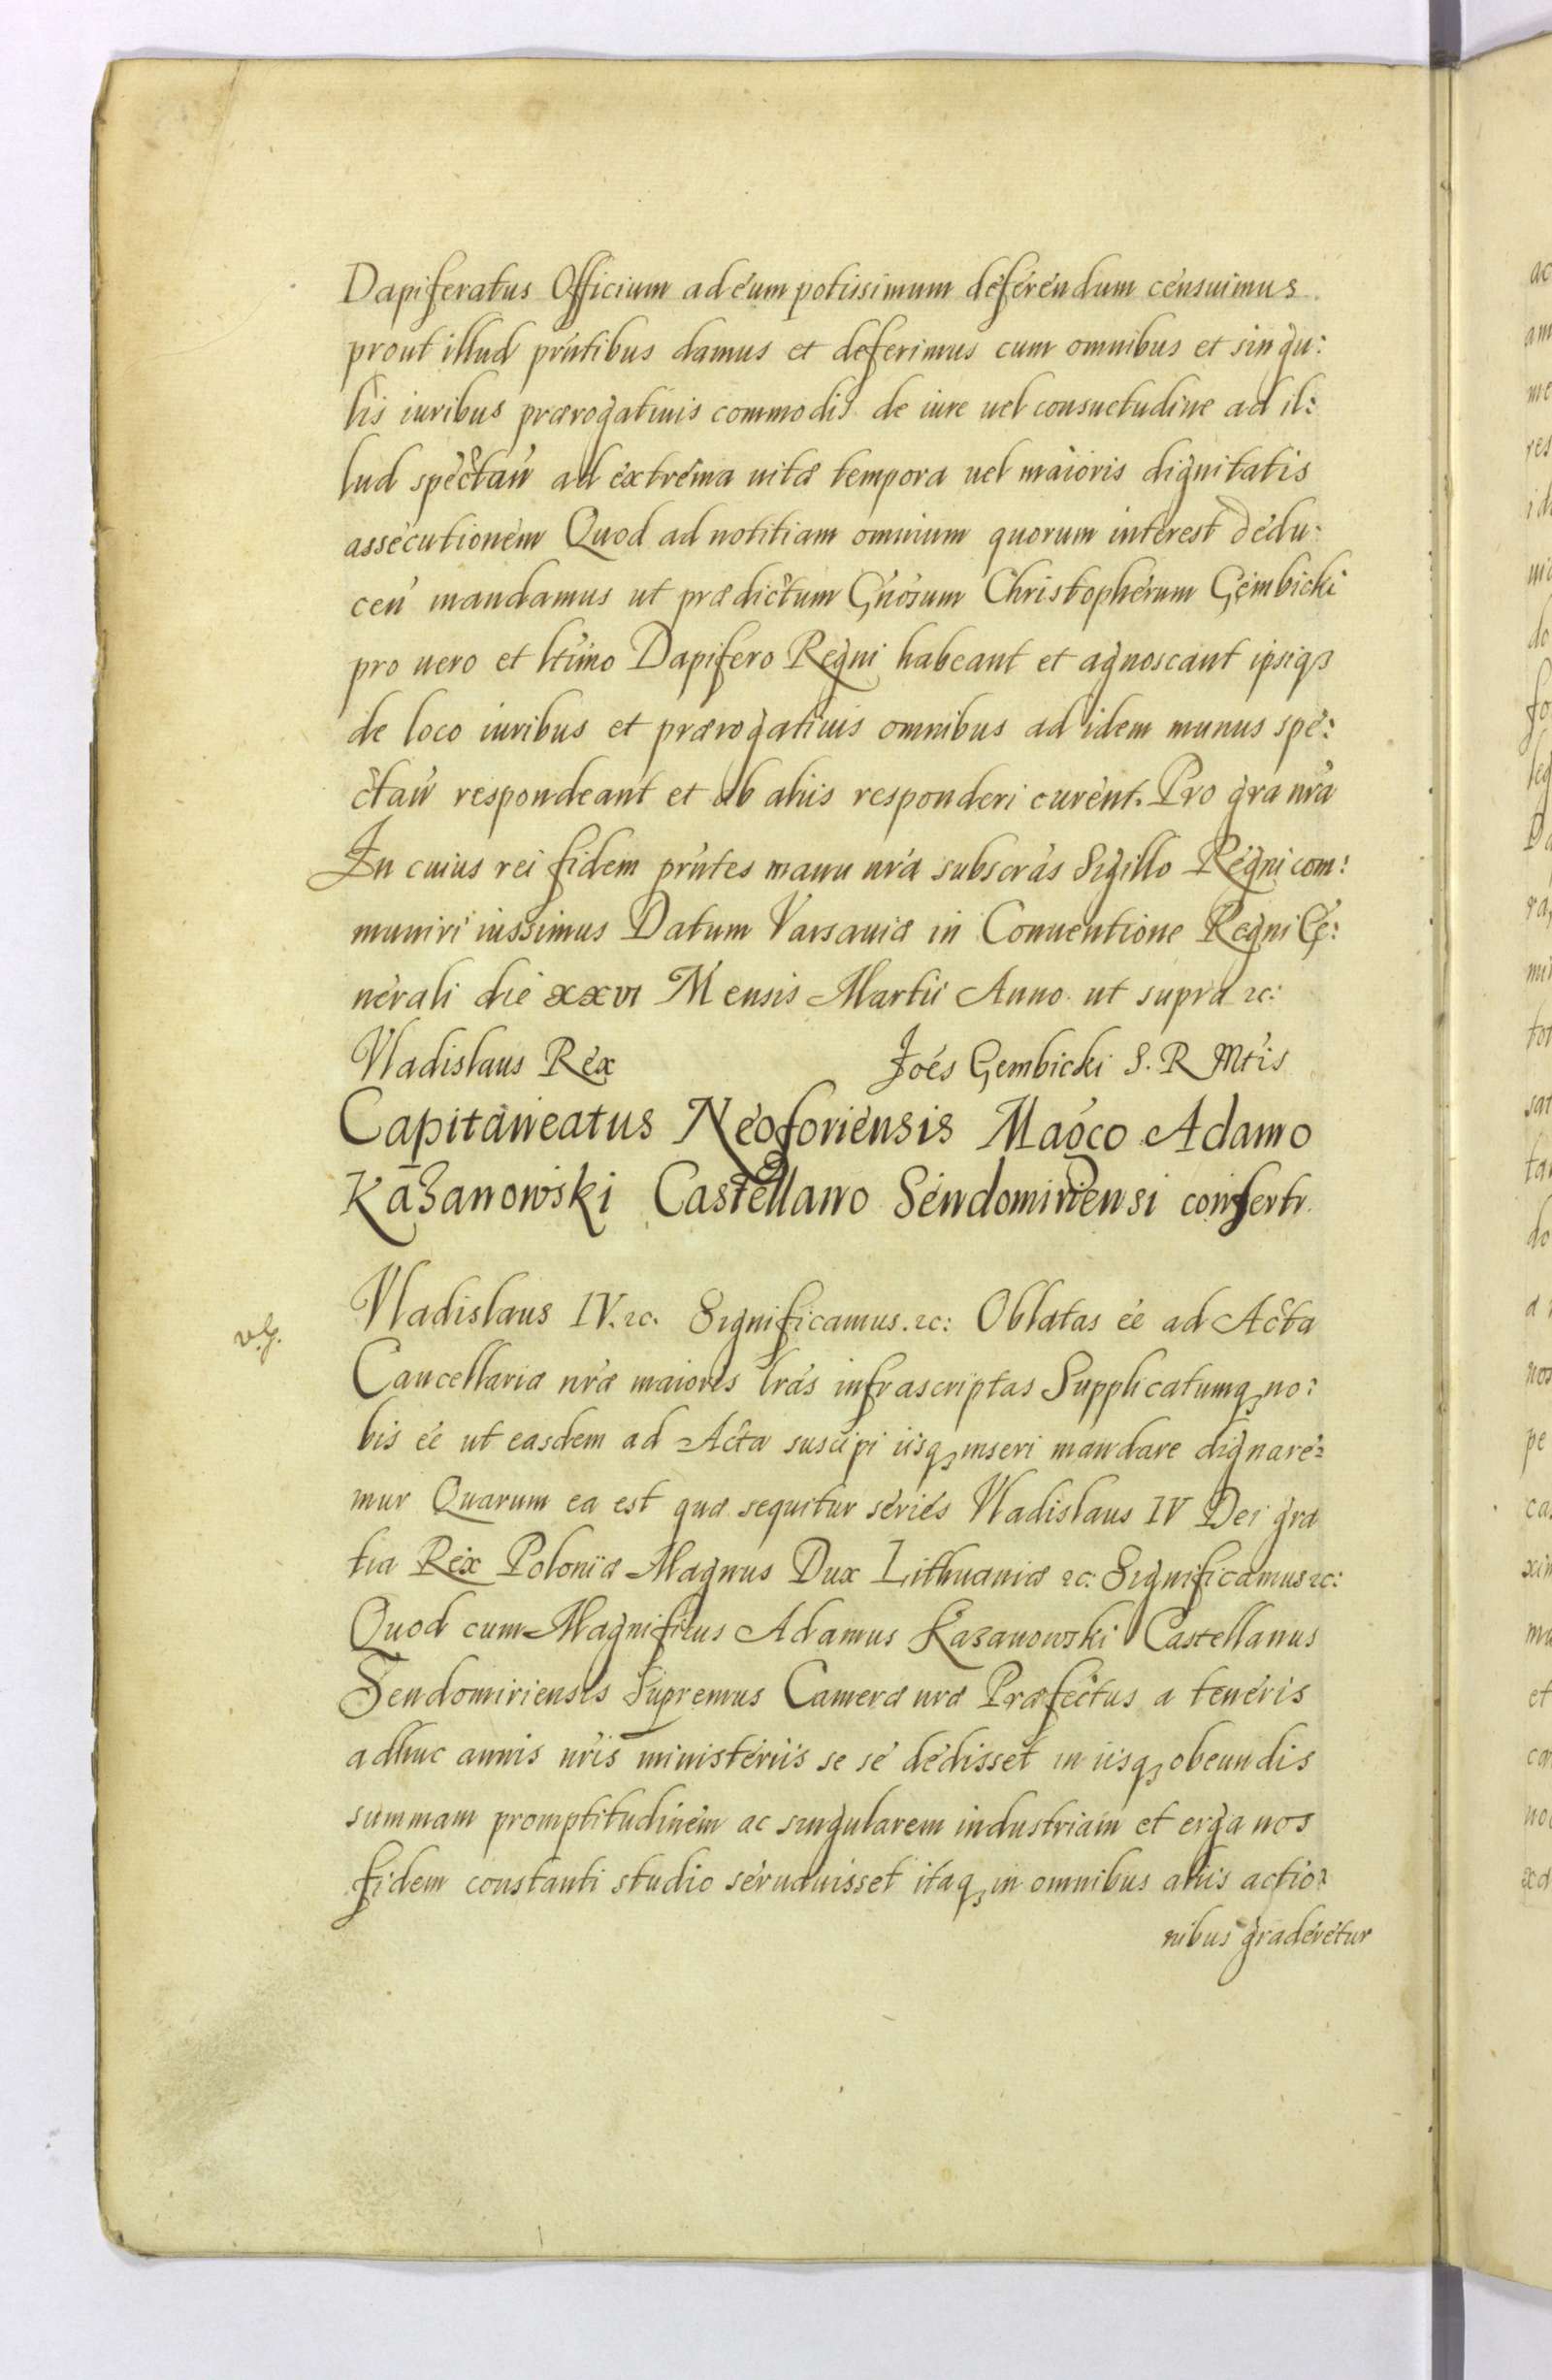 Dapiferatus Officium ad eum potissimum deferendum censuimus
prout illud prńtibus damus et deferimus cum omnibus et singu:
lis iuribus prærogatiuis commodis de iure uel consuetudine ad il:
lud spectań ad extrema uitæ tempora uel maioris dignitatis
assecutionem Quod ad notitiam omnium quorum interest dedu:
ceń mandamus ut prædictum Gńosum Christopherum Gembicki
pro uero et ltimo Dapifero Regni habeant et agnoscant ipsiqȝ
de loco iuribus et prærogatiuis omnibus ad idem munus spe:
ctań respondeant et ab aliis responderi curent. Pro gra nrá
In cuius rei fidem prńtes manu nrá subscrás Sigillo Regni com:
muniri iussimus Datum Varsauiæ in Conuentione Regni Ge:
nerali die xxvi Mensis Martii Anno ut supra ⁊c:
Vladislaus Rex Joés Gembicki S. R Mtis
Capitaneatus Neoforiensis Magco Adamo
Kazanowski Castellano Sendomiriensi confertr
v.g.
Vladislaus IV. ⁊c. Significamus. ⁊c: Oblatas eé ad Acta
Cancellariæ nrǽ maioris lrás infrascriptas Supplicatumqȝ no:
bis eé ut easdem ad Acta suscipi iisqȝ inseri mandare dignare:
mur Quarum ea est quæ sequitur series Vladislaus IV Dei gra
tia Rex Poloniæ Magnus Dux Lithuaniæ ⁊c: Significamus ⁊c:
Quod cum Magnificus Adamus Kazanowski Castellanus
Sendomiriensis Supremus Cameræ nræ Præfectus a teneris
adhuc annis nrís ministeriis se se dedisset in iisqȝ obeundis
summam promptitudinem ac singularem industriam et erga nos
fidem constanti studio seruauisset itaqȝ in omnibus aliis actio:
nibus graderetur